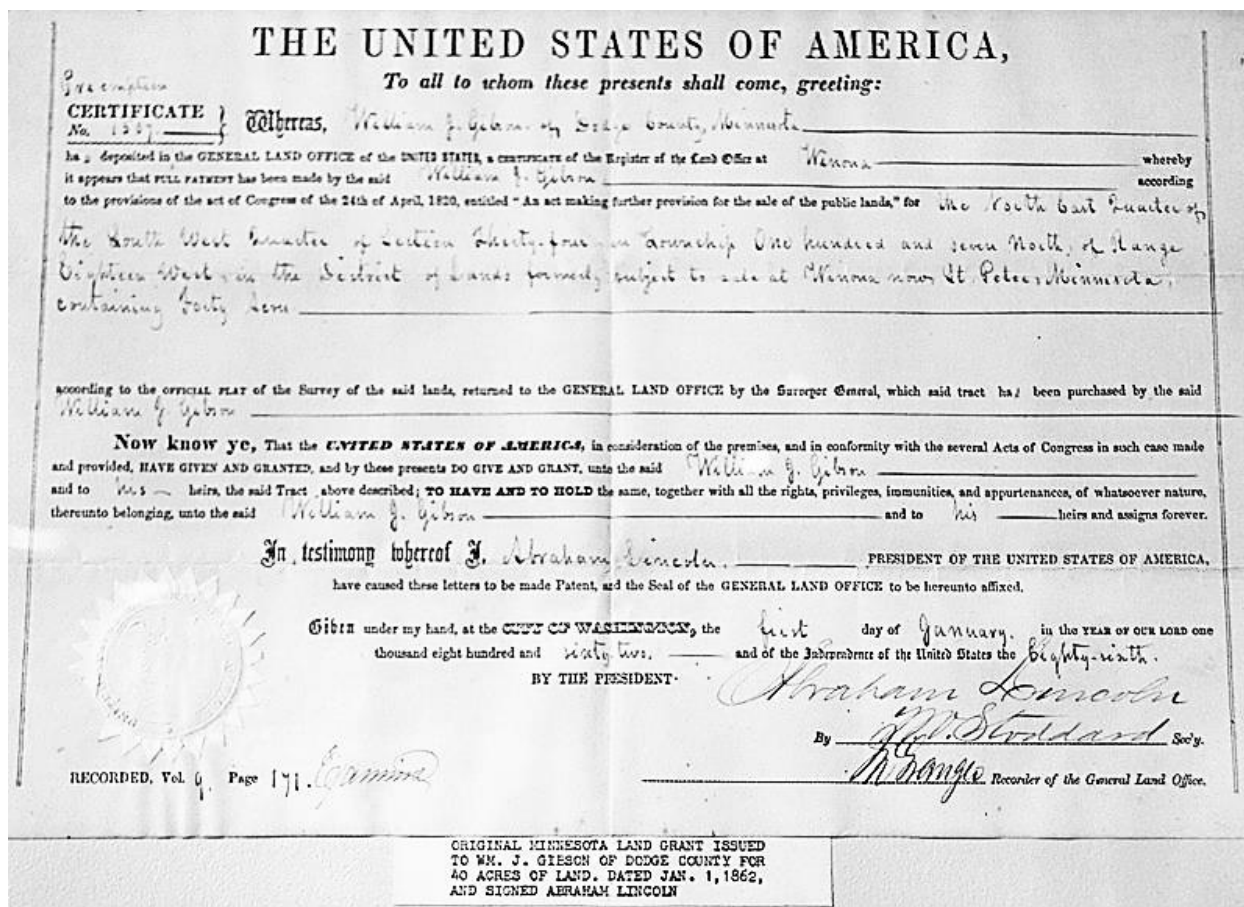 THE UNITED STATES OF AMERICA,
To all to whom these presents shall come, greeting:
Preemption
CERTIFICATE
No. 1507
Whereas, William J. Gibson of Dodge County, Minnesota
has deposited in the GENERAL LAND OFFICE of the UNITED STATES, a CERTIFICATE of the Register of the Land Office at Winona whereby
it appears that FULL PAYMENT has been made by the said William J. Gibson according
to the provisions of the act of Congress of the 24th of April, 1820, entitled "An act making further provision for the sale of the public lands," for the North East Quarter of
the South West Quarter of Section Thirty-four in Township One hundred and seven North, of Range
Eighteen West in the District of Lands formerly subject to sale at Winona now St. Peter, Minnesota,
containing Forty Acres
according to the OFFICIAL PLAT of the Survey of the said lands, returned to the GENERAL LAND OFFICE by the Surveyor General, which said tract has been purchased by the said
William J. Gibson
Now know ye, That the UNITED STATES OF AMERICA, in consideration of the premises, and in conformity with the several Acts of Congress in such case made
and provided, HAVE GIVEN AND GRANTED, and by these presents DO GIVE AND GRANT, unto the said William J. Gibson
and to his heirs, the said Tract above described; TO HAVE AND TO HOLD the same, together with all the rights, privileges, immunities, and appurtenances, of whatsoever nature,
thereunto belonging, unto the said William J. Gibson and to his heirs and assigns forever.
In testimony whereof I, Abraham Lincoln, PRESIDENT OF THE UNITED STATES OF AMERICA,
have caused these letters to be made Patent, and the Seal of the GENERAL LAND OFFICE to be hereunto affixed.
Given under my hand, at the CITY OF WASHINGTON, the first day of January, in the YEAR OF OUR LORD one
thousand eight hundred and sixty two, and of the Independence of the United States the Eighty-sixth.
BY THE PRESIDENT:
Abraham Lincoln
By W.O. Stoddard Sec'y.
RECORDED, Vol. 9. Page 171.
Recorder of the General Land Office.
ORIGINAL MINNESOTA LAND GRANT ISSUED
TO WM. J. GIBSON OF DODGE COUNTY FOR
40 ACRES OF LAND. DATED JAN. 1,1862,
AND SIGNED ABRAHAM LINCOLN